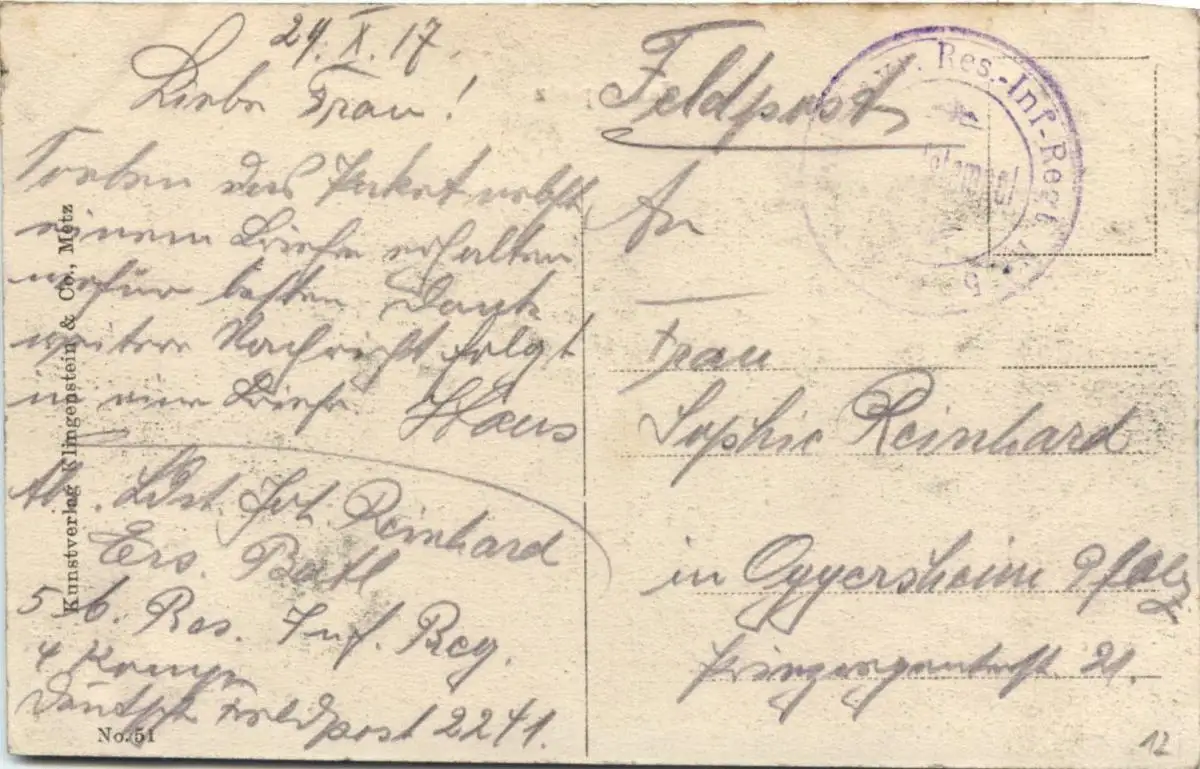 29. X. 17.
Liebe Frau!
Soeben das Paket nebst
einem Briefe erhalten
wofür besten Dank
weitere Nachricht folgt
in eine Briefe. Haus
Ab. Ldst. Joh. Reinhard
Ers. Batl
5 b. Res. Inf. Reg.
4 Komp
Deutsche Feldpost 2241.
No. 51
Kunstverlag Klingenstein & Co., Metz
Feldpost
Res.-Inf-Regt. 5
An
Frau
Sophie Reinhard
in Oggersheim Pfalz
21.
12